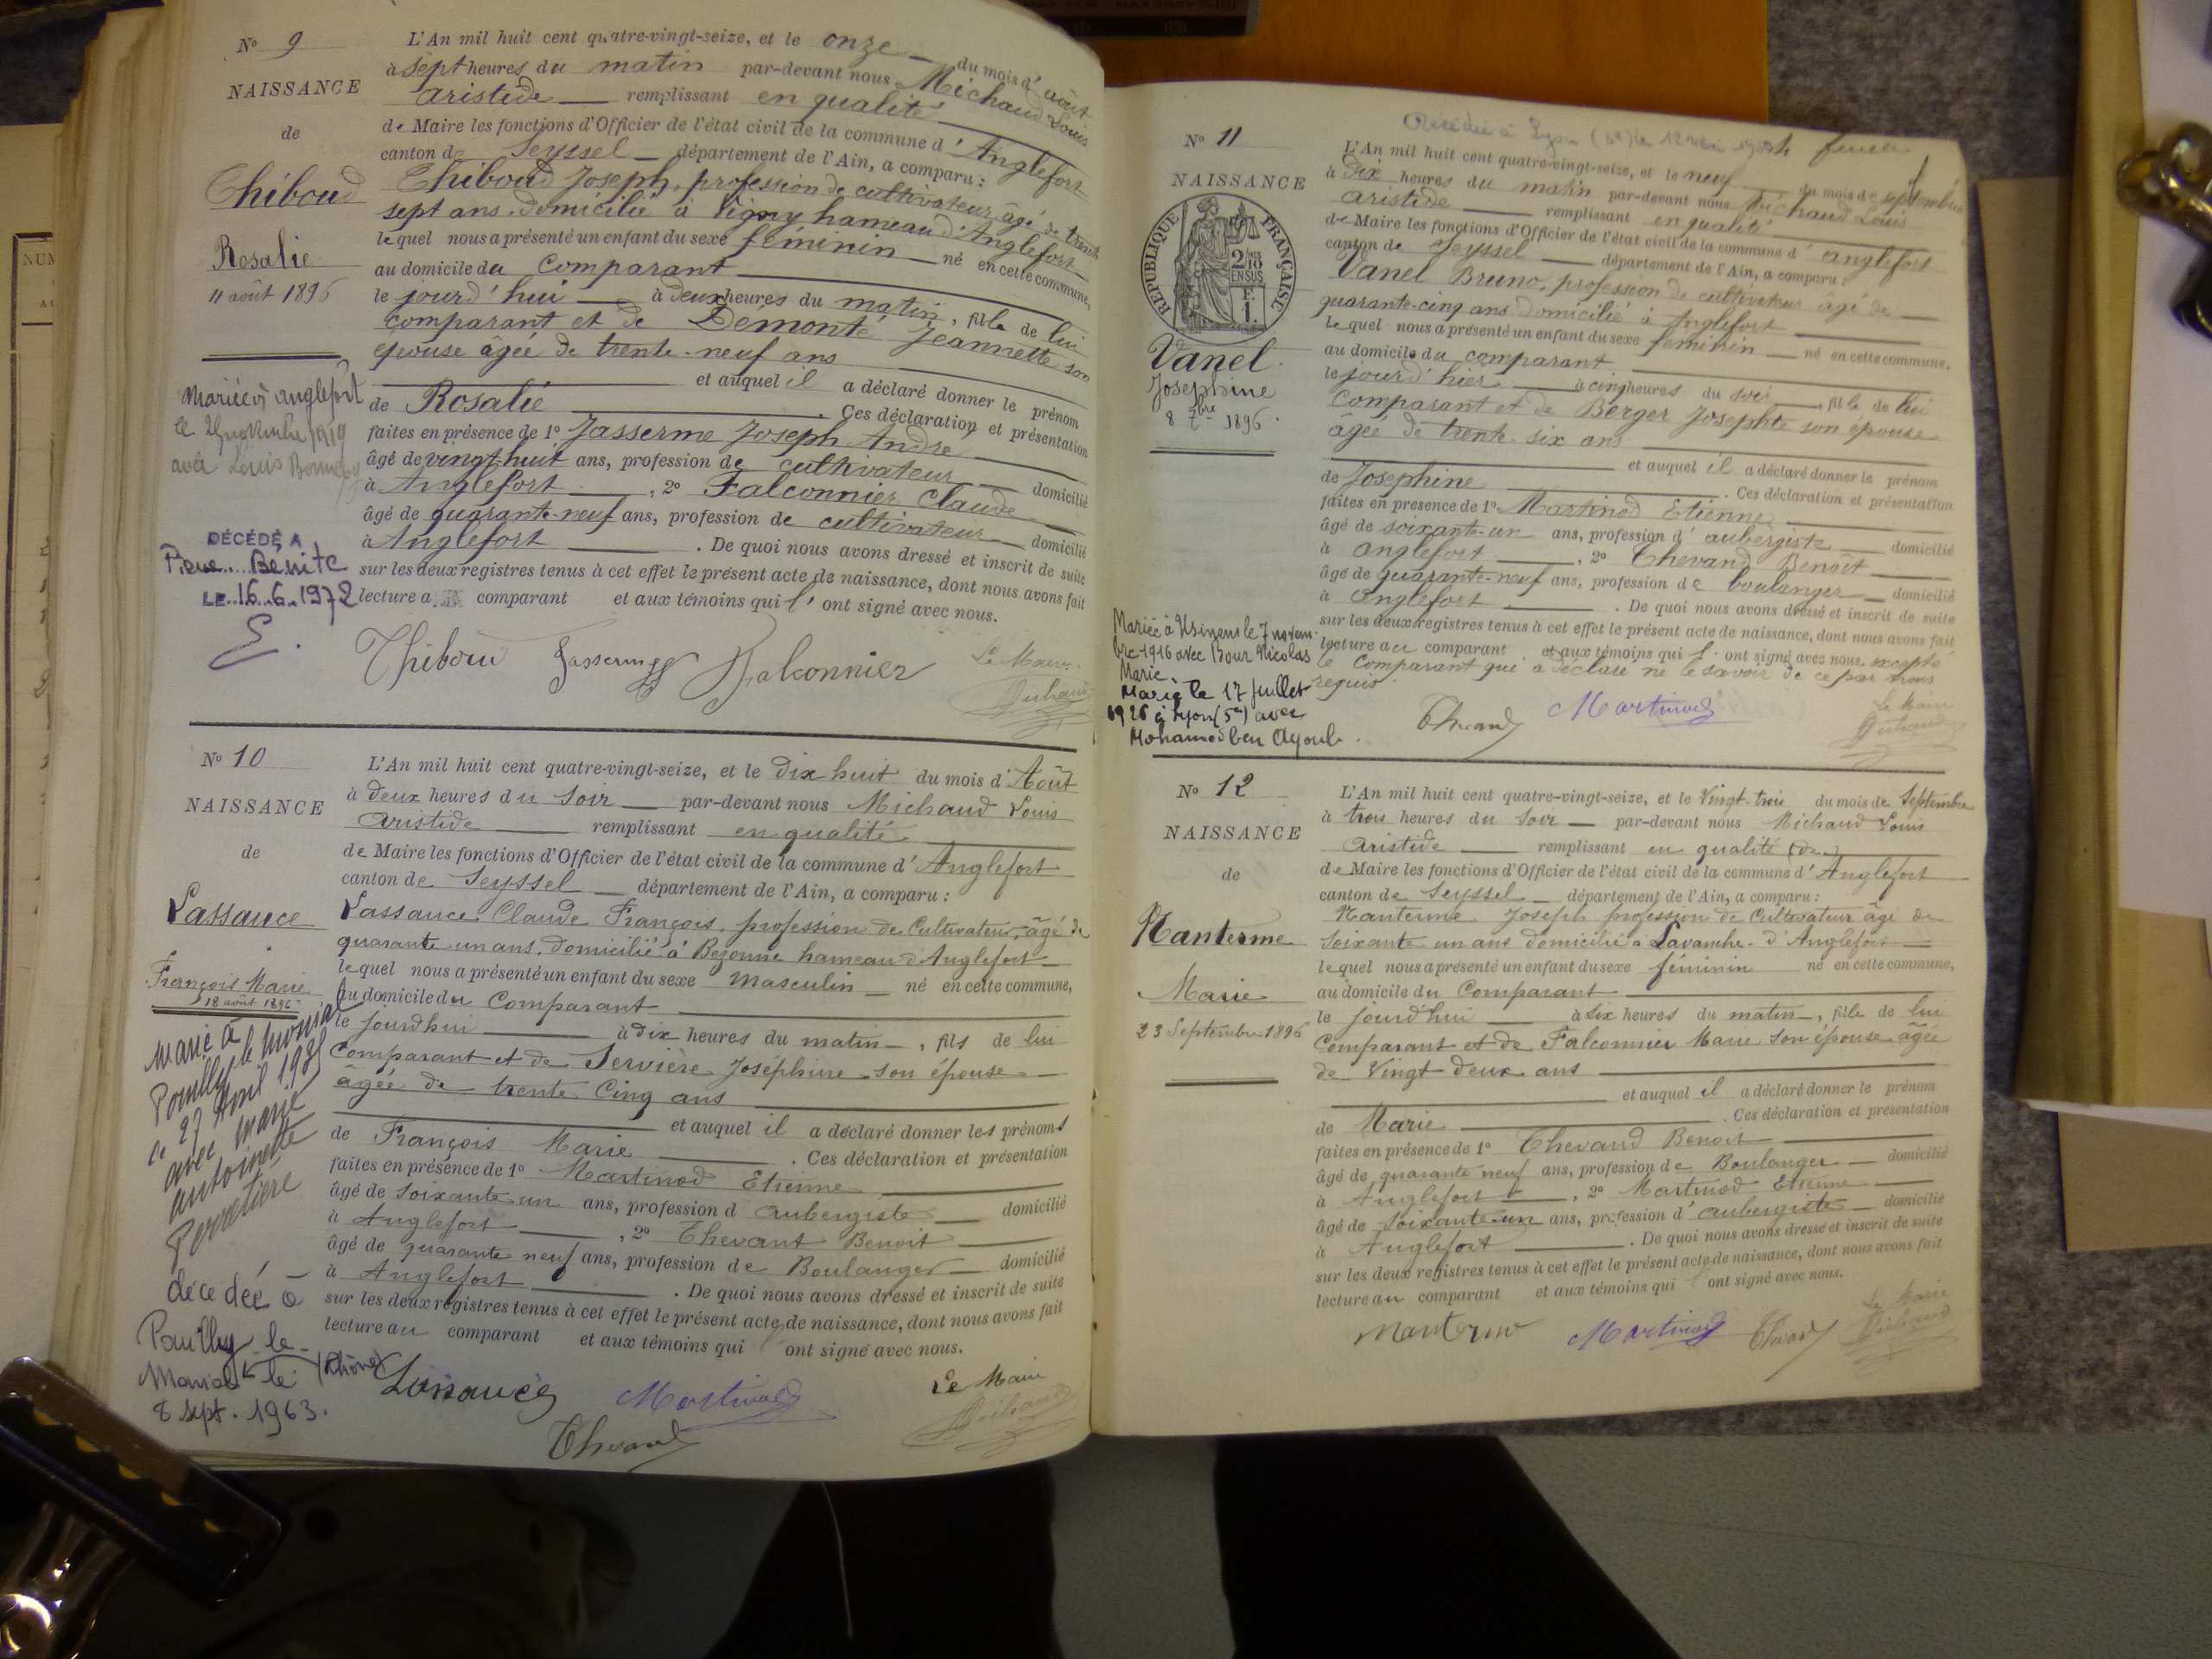 N° 9
NAISSANCE
de
Thiboud
Rosalie
11 août 1896
Mariée à Anglefort
le novembre 1919
avec Louis
DÉCÉDÉ A
Pierre Benite
LE 16.6.1972
L'An mil huit cent quatre-vingt-seize, et le onze du mois d'août
à sept heures du matin par-devant nous Michaud Louis
Aristide remplissant en qualité
de Maire les fonctions d'Officier de l'état civil de la commune d'Anglefort
canton de Seyssel département de l'Ain, a comparu :
Thiboud Joseph, profession de cultivateur, âgé de trente
sept ans, domicilié à Vigny hameau d'Anglefort
lequel nous a présenté un enfant du sexe féminin né en cette commune,
au domicile du comparant
le jourd'hui à deux heures du matin, fille de lui
comparant et de Demonté Jeannette son
épouse âgée de trente-neuf ans
et auquel il a déclaré donner le prénom
de Rosalie . Ces déclaration et présentation
faites en présence de 1° Jasserme Joseph André
âgé de vingt-huit ans, profession de cultivateur domicilié
à Anglefort , 2° Falconnier Claude
âgé de quarante-neuf ans, profession de cultivateur domicilié
à Anglefort . De quoi nous avons dressé et inscrit de suite
sur les deux registres tenus à cet effet le présent acte de naissance, dont nous avons fait
lecture a comparant et aux témoins qui l' ont signé avec nous.
Thiboud Jasserme Falconnier
Le Maire
N° 10
NAISSANCE
de
Lassauce
François Marie
18 août 1896
Marié à
Pouilly le Monial
le 27 Avril 1985
avec Marie
antoinette
Perretière
décédé à
Pouilly-le-
Monial (Rhône)
le
8 sept. 1963.
L'An mil huit cent quatre-vingt-seize, et le dix huit du mois d'Août
à deux heures du soir par-devant nous Michaud Louis
Aristide remplissant en qualité
de Maire les fonctions d'Officier de l'état civil de la commune d'Anglefort
canton de Seyssel département de l'Ain, a comparu :
Lassauce Claude François, profession de Cultivateur, âgé de
quarante un ans, domicilié à Bezonne hameau d'Anglefort
lequel nous a présenté un enfant du sexe masculin né en cette commune,
au domicile du Comparant
le jourdhui à dix heures du matin , fils de lui
Comparant et de Servière Joséphine son épouse
âgée de trente Cinq ans
et auquel il a déclaré donner les prénoms
de François Marie . Ces déclaration et présentation
faites en présence de 1° Martinod Etienne
âgé de soixante un ans, profession d aubergiste domicilié
à Anglefort , 2° Thevant Benoit
âgé de quarante neuf ans, profession de Boulanger domicilié
à Anglefort . De quoi nous avons dressé et inscrit de suite
sur les deux registres tenus à cet effet le présent acte de naissance, dont nous avons fait
lecture au comparant et aux témoins qui ont signé avec nous.
Lassauce Martinod Le Maire
Thevand
Décédée à Lyon
N° 11
NAISSANCE
RÉPUBLIQUE FRANÇAISE
Vanel
Josephine
8 7bre 1896.
Mariée à Usinens le 7 novem-
bre 1916 avec Bour Nicolas
Marie.
Marié le 17 Juillet
1926 à Lyon (5e) avec
Mohamed ben Ayoub.
L'An mil huit cent quatre-vingt-seize, et le neuf du mois de septembre
à Dix heures du matin par-devant nous Michaud Louis
Aristide remplissant en qualité
de Maire les fonctions d'Officier de l'état civil de la commune d'anglefort
canton de Seyssel département de l'Ain, a comparu :
Vanel Bruno, profession de cultivateur âgé de
quarante-cinq ans domicilié à Anglefort
lequel nous a présenté un enfant du sexe féminin né en cette commune,
au domicile du comparant
le jourd'hier à cinq heures du soir , fille de lui
comparant et de Berger Josephte son épouse
âgée de trente-six ans
et auquel il a déclaré donner le prénom
de Josephine . Ces déclaration et présentation
faites en présence de 1° Martinod Etienne
âgé de soixante-un ans, profession d'aubergiste domicilié
à anglefort , 2° Thevand Benoît
âgé de quarante-neuf ans, profession de boulanger domicilié
à Anglefort . De quoi nous avons dressé et inscrit de suite
sur les deux registres tenus à cet effet le présent acte de naissance, dont nous avons fait
lecture au comparant et aux témoins qui l' ont signé avec nous, excepté
le comparant qui a déclaré ne le savoir de ce par nous
requis.
Thevand Martinod
Le Maire
N° 12
NAISSANCE
de
Nanterme
Marie
23 Septembre 1896
L'An mil huit cent quatre-vingt-seize, et le Vingt-trois du mois de Septembre
à trois heures du soir par-devant nous Michaud Louis
Aristide remplissant en qualité (de)
de Maire les fonctions d'Officier de l'état civil de la commune d'Anglefort
canton de Seyssel département de l'Ain, a comparu :
Nanterme Joseph profession de Cultivateur âgé de
soixante un ans domicilié à Lavanche d'Anglefort
lequel nous a présenté un enfant du sexe féminin né en cette commune,
au domicile du Comparant
le jourd'hui à six heures du matin , fille de lui
Comparant et de Falconnier Marie son épouse âgée
de Vingt-deux ans
et auquel il a déclaré donner le prénom
de Marie . Ces déclaration et présentation
faites en présence de 1° Thevand Benoit
âgé de quarante neuf ans, profession de Boulanger domicilié
à Anglefort , 2° Martinod Etienne
âgé de soixante-un ans, profession d'aubergiste domicilié
à Anglefort . De quoi nous avons dressé et inscrit de suite
sur les deux registres tenus à cet effet le présent acte de naissance, dont nous avons fait
lecture au comparant et aux témoins qui ont signé avec nous.
Nanterme Martinod Thevand
Le Maire